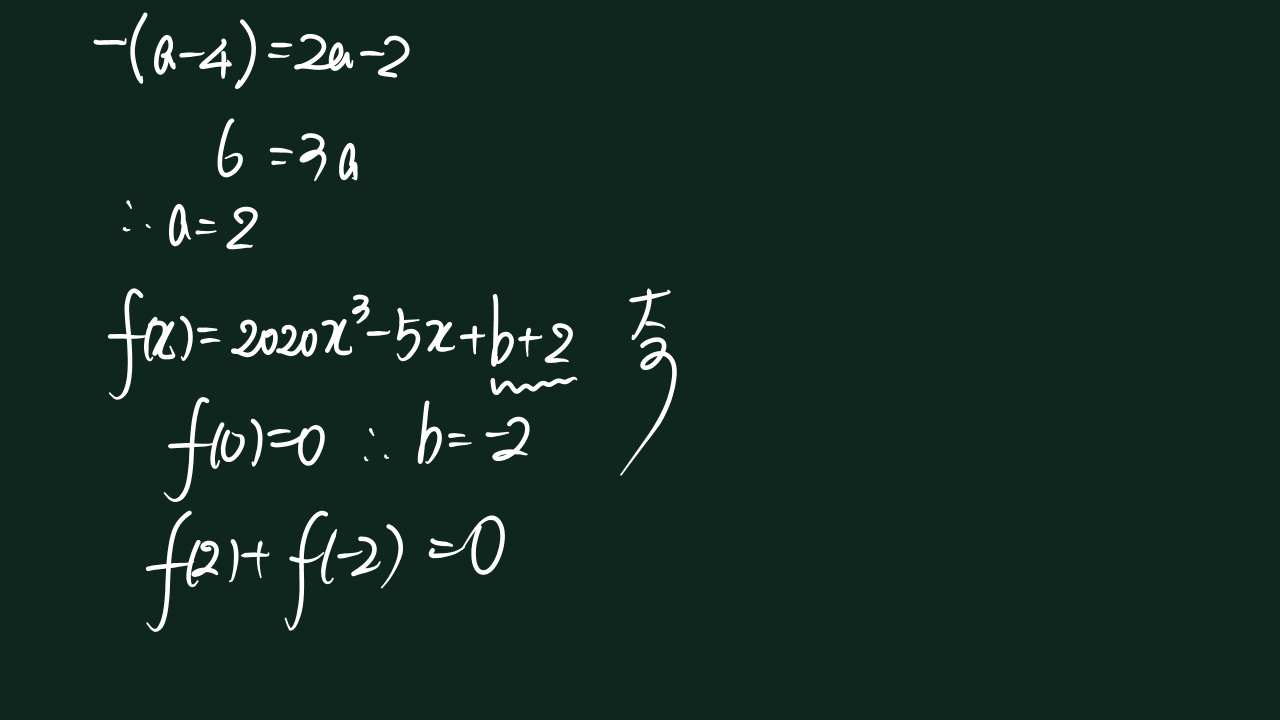 -(a-4)=2a-2
6=3a
∴ a=2
f(x)=2020x³-5x+b+2
f(0)=0 ∴ b=-2
f(2)+f(-2)=0